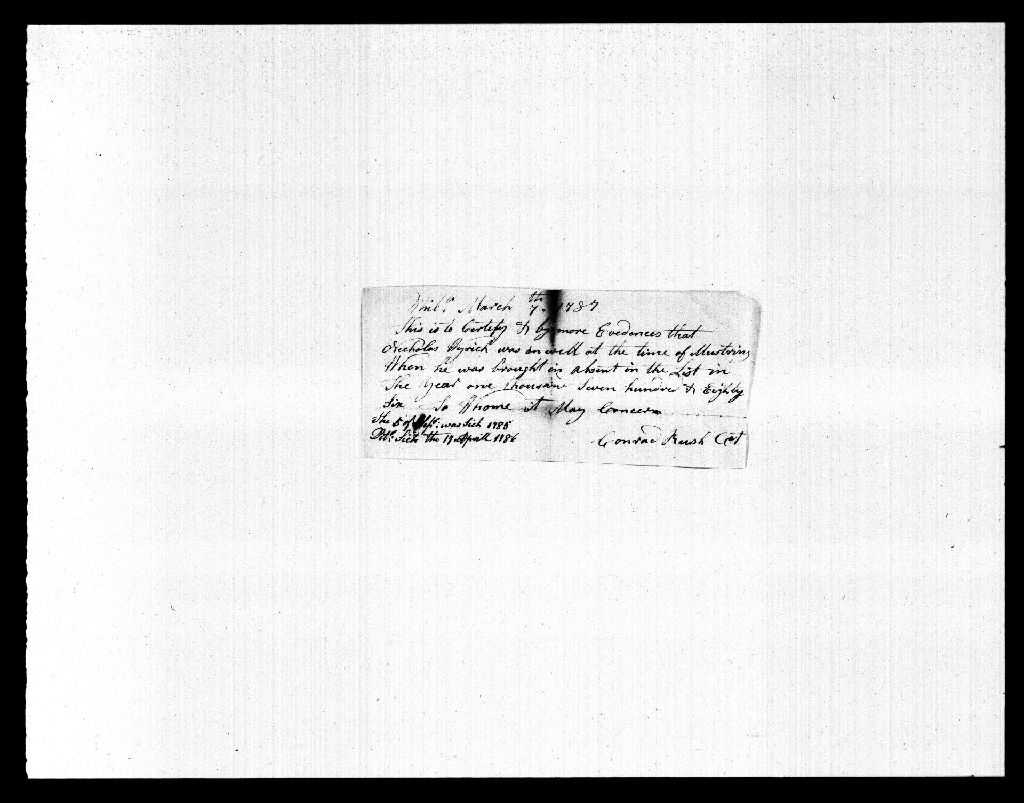 March 7th 1787
This is to Certefy & by more Evedences that
Nicholas was onwell at the time of Mustring
When he was brought in absent in the List in
The Year one thousand Seven hundre & Eighty
Six To Whome it May Concern
The 5 of Sept: was Sick 1785
Sick the 19 Aprill 1786
Conrad Rush Cpt